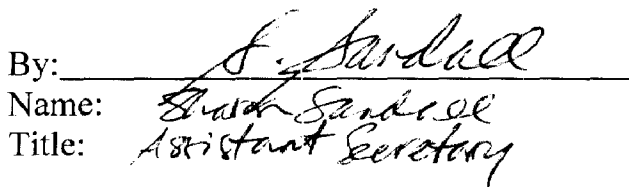 By: S. Sandall
Name: Sharon Sandall
Title: Assistant Secretary